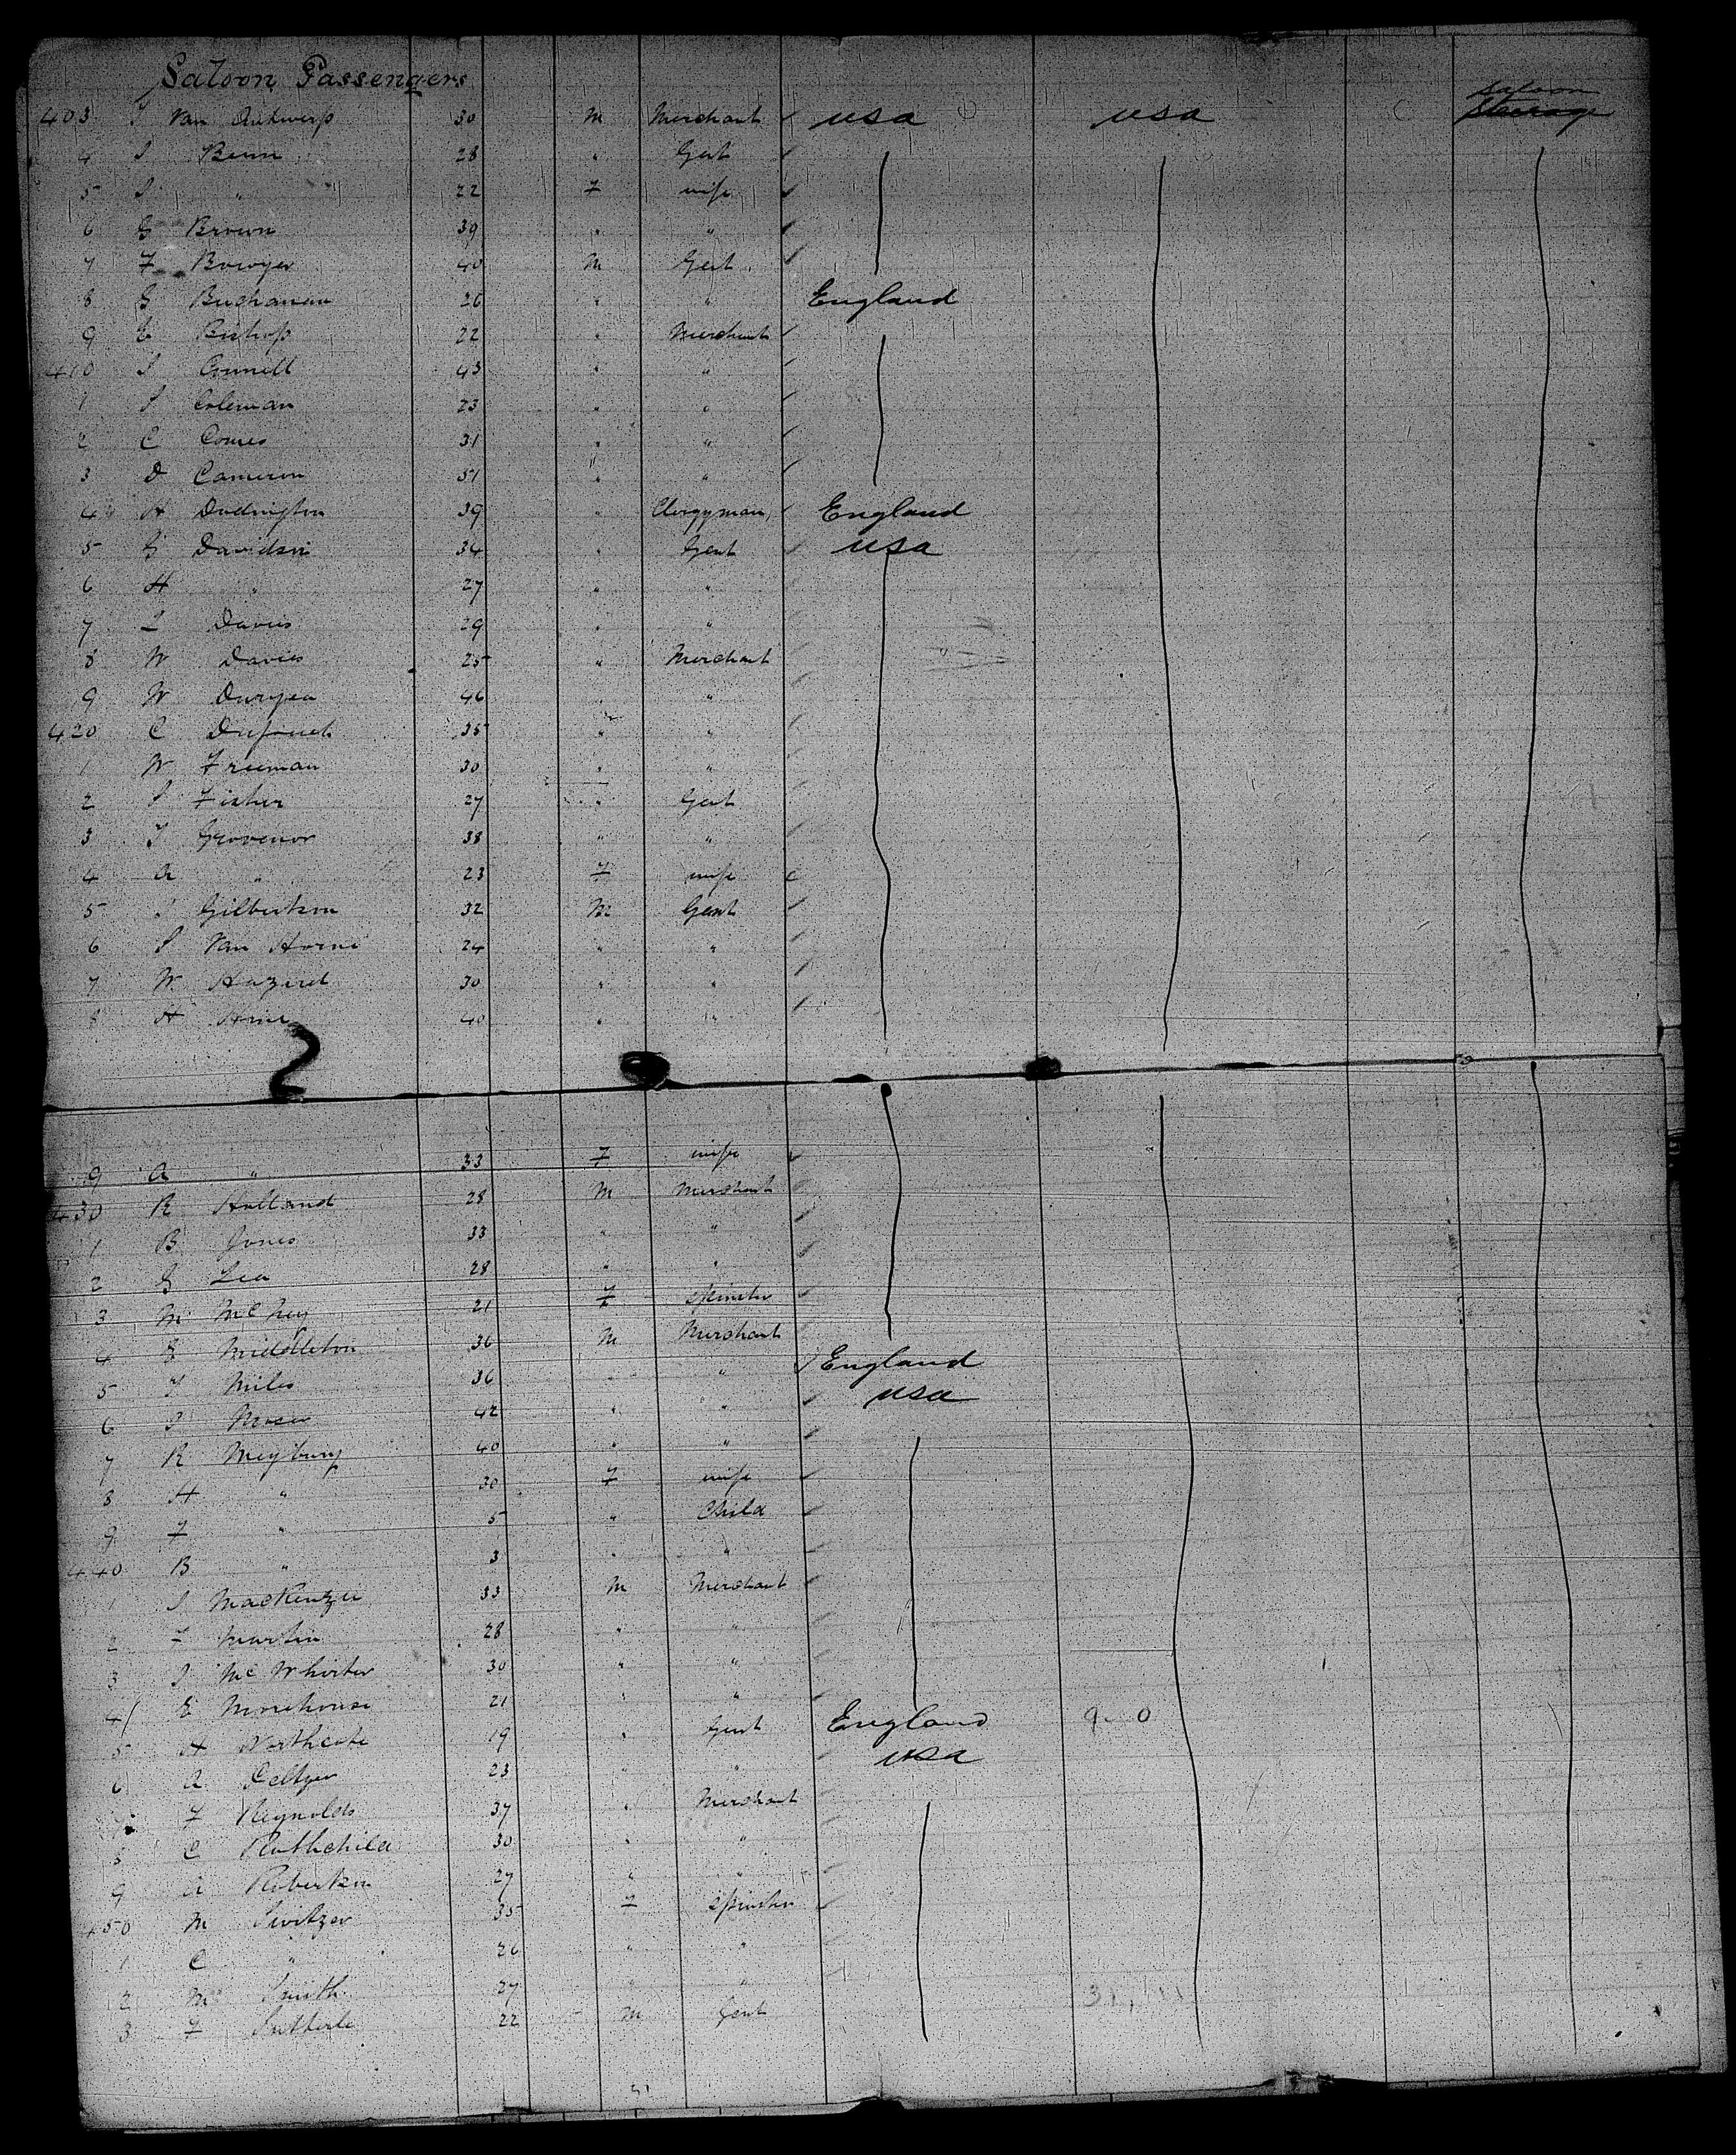 Saloon Passengers
Saloon
403 J Van Antwerp 30 M Merchant USA USA Steerage
4 J Benn 28 " Gent
5 J " 22 F wife
6 G Brown 39 " "
7 F Bowyer 40 M Gent
8 G Buchanan 26 " " England
9 E Bishop 22 " Merchant
410 J Connell 43 " "
1 J Coleman 23 " "
2 C Comes 31 " "
3 D Cameron 51 " "
4 H Dodington 39 " Clergyman England
5 G Davidson 34 " Gent USA
6 H " 27 " "
7 L Davis 29 " "
8 W Davies 25 " Merchant
9 W Duryea 46 " "
420 C 35 " "
1 W Freeman 30 " "
2 J Fisher 27 " Gent
3 T Grovenor 38 " "
4 A " 23 F wife
5 J Gilbertson 32 M Gent
6 J Van Horne 24 " "
7 W Hazard 30 " "
8 H 40 " "
2
9 A " 33 F wife
430 R Holland 28 M Merchant
1 B Jones 33 " "
2 G Lea 28 " "
3 M 21 F Spinster
4 G Middleton 36 M Merchant
5 T Miles 36 " " England
6 J 42 " " USA
7 R Meybury 40 " "
8 H " 30 F wife
9 F " 5 " Child
440 B " 3 " "
1 J MacKenzie 33 M Merchant
2 F Martin 28 " "
3 J McWhirter 30 " "
4 E Morehouse 21 " "
5 H Northcote 19 " Gent England
6 A Peltzer 23 " " USA
7 F Reynolds 37 " Merchant
8 C Rothchild 30 " "
9 A Robertson 27 " "
450 M Switzer 35 F Spinster
1 C " 26 " "
2 M Smith 27 " "
3 F 22 M Gent